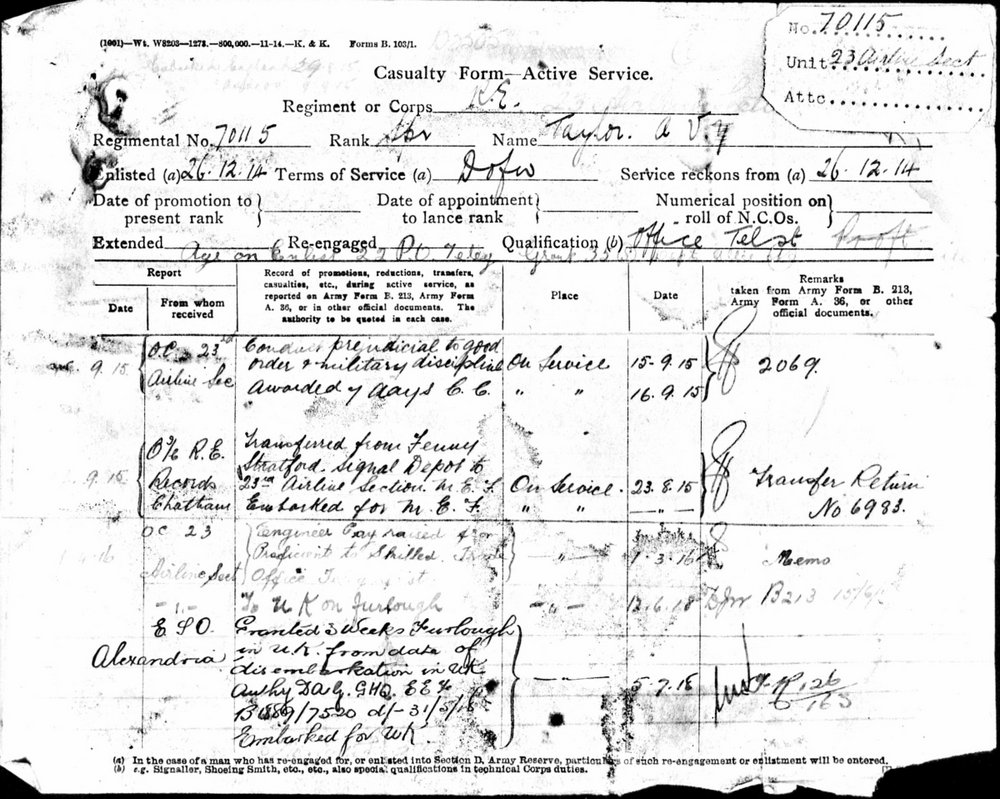 (1091)—Wt. W8203—1273.—800,000.—11-14.—K. & K. Forms B. 103/1.
No. 70115
Unit 23 Airline Sect
Attc.
Casualty Form—Active Service.
Regiment or Corps R.E.
Regimental No. 70115 Rank Spr Name Taylor. A V. Y
Enlisted (a) 26.12.14 Terms of Service (a) DofW Service reckons from (a) 26.12.14
Date of promotion to present rank } Date of appointment to lance rank } Numerical position on roll of N.C.Os. }
Extended Re-engaged Qualification (b) Office Telst Proft
Age on Enlist 22
Report
Date
From whom received
Record of promotions, reductions, transfers, casualties, etc., during active service, as reported on Army Form B. 213, Army Form A. 36, or in other official documents. The authority to be quoted in each case.
Place
Date
Remarks
taken from Army Form B. 213, Army Form A. 36, or other official documents.
9.15 O.C. 23rd Conduct prejudicial to good
Airline Sec order & military discipline On Service 15.9.15 2069.
Awarded 7 days C.C. " " 16.9.15
9.15 O/c R.E. Transferred from Fenny
Records Stratford Signal Depot to
Chatham 23rd Airline Section M.E.F. On Service. 23.8.15 Transfer Return
Embarked for M.E.F. " " —"— No 6983.
OC 23 Engineer Pay raised
Airline Sect Proficient to Skilled. —"— 1.3.16 Memo
Office
—"— To U K on furlough —"— 12.6.18 B213
E S O. Granted 3 Weeks Furlough
Alexandria in U.K. from date of
disembarkation in UK
Authy DAG. GHQ. EEF —"— 5.7.18
d/- 31/5/18
Embarked for UK.
(a) In the case of a man who has re-engaged for, or enlisted into Section D, Army Reserve, particulars of such re-engagement or enlistment will be entered.
(b) e.g. Signaller, Shoeing Smith, etc., etc., also special qualifications in technical Corps duties.